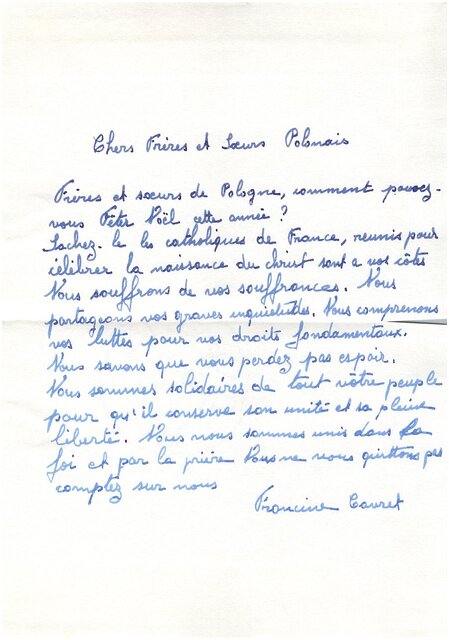 Chers Frères et Sœurs Polonais
Frères et sœurs de Pologne, comment pouvez-
vous Fêter Noël cette année ?
Sachez-le les catholiques de France, reunis pour
célébrer la naissance du christ sont a vos côtés
Nous souffrons de vos souffrances. Nous
partageons vos graves inquietudes. Nous comprenons
vos luttes pour vos droits fondamentaux.
Nous savons que vous perdez pas espoir.
Nous sommes solidaires de tout vôtre peuple
pour qu'il conserve son unité et sa pleine
liberté. Nous nous sommes unis dans la
foi et par la prière Nous ne vous quittons pas
comptez sur nous
Francine